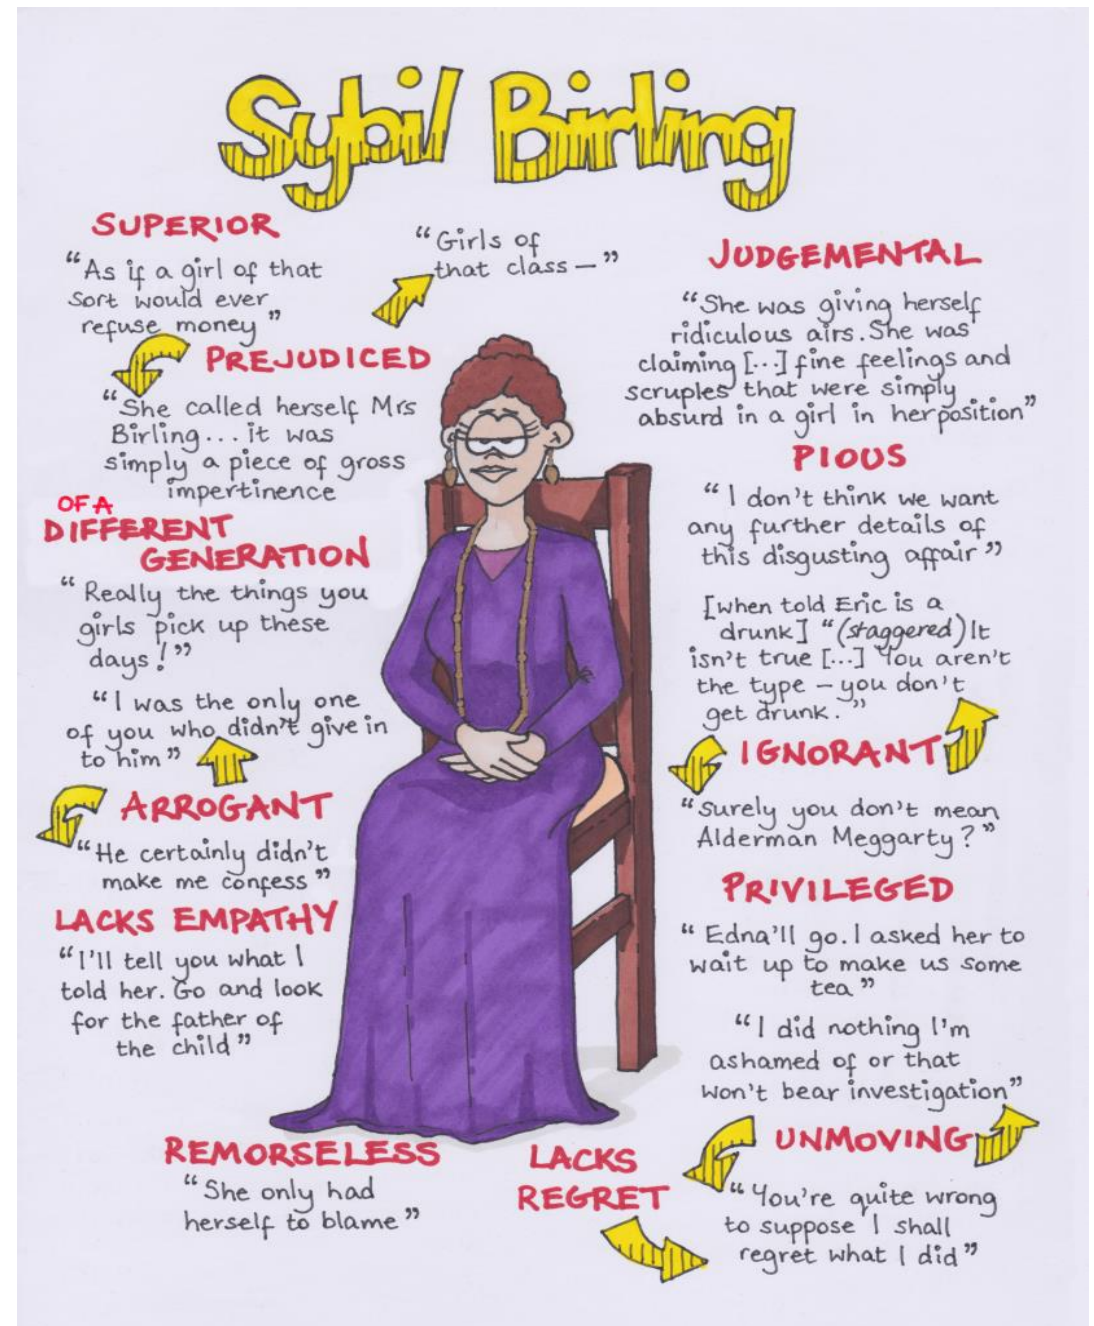 Sybil Birling
SUPERIOR
“As if a girl of that
sort would ever
refuse money”
“Girls of
that class—”
PREJUDICED
“She called herself Mrs
Birling... it was
simply a piece of gross
impertinence
OF A
DIFFERENT
GENERATION
“Really the things you
girls pick up these
days!”
“I was the only one
of you who didn't give in
to him”
ARROGANT
“He certainly didn't
make me confess”
LACKS EMPATHY
“I'll tell you what I
told her. Go and look
for the father of
the child”
REMORSELESS
“She only had
herself to blame”
LACKS
REGRET
JUDGEMENTAL
“She was giving herself
ridiculous airs. She was
claiming [...] fine feelings and
scruples that were simply
absurd in a girl in her position”
PIOUS
“I don't think we want
any further details of
this disgusting affair”
[when told Eric is a
drunk] “(staggered) It
isn't true [...] You aren't
the type – you don't
get drunk.”
IGNORANT
“Surely you don't mean
Alderman Meggarty?”
PRIVILEGED
“Edna'll go. I asked her to
wait up to make us some
tea”
“I did nothing I'm
ashamed of or that
won't bear investigation”
UNMOVING
“You're quite wrong
to suppose I shall
regret what I did”